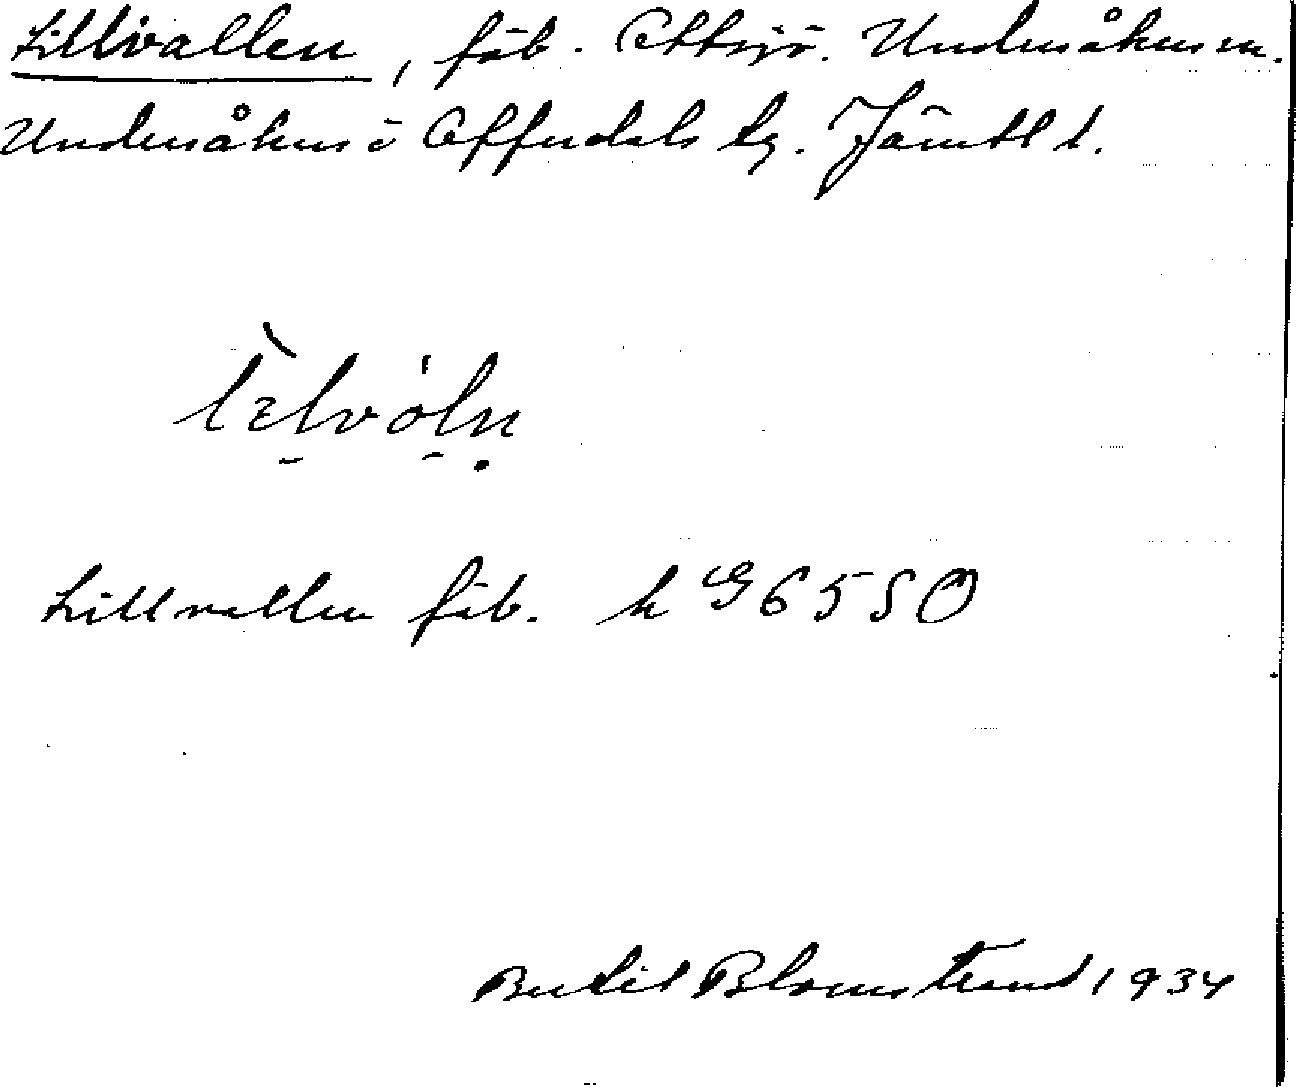 Lillvallen, fäb. Ottsjö. Undersåkers sn.
Undersåkers o Offerdals tg. Jämtl l.
Lillvallen fäb. k G 6550
Bertil Blomstrand 1934